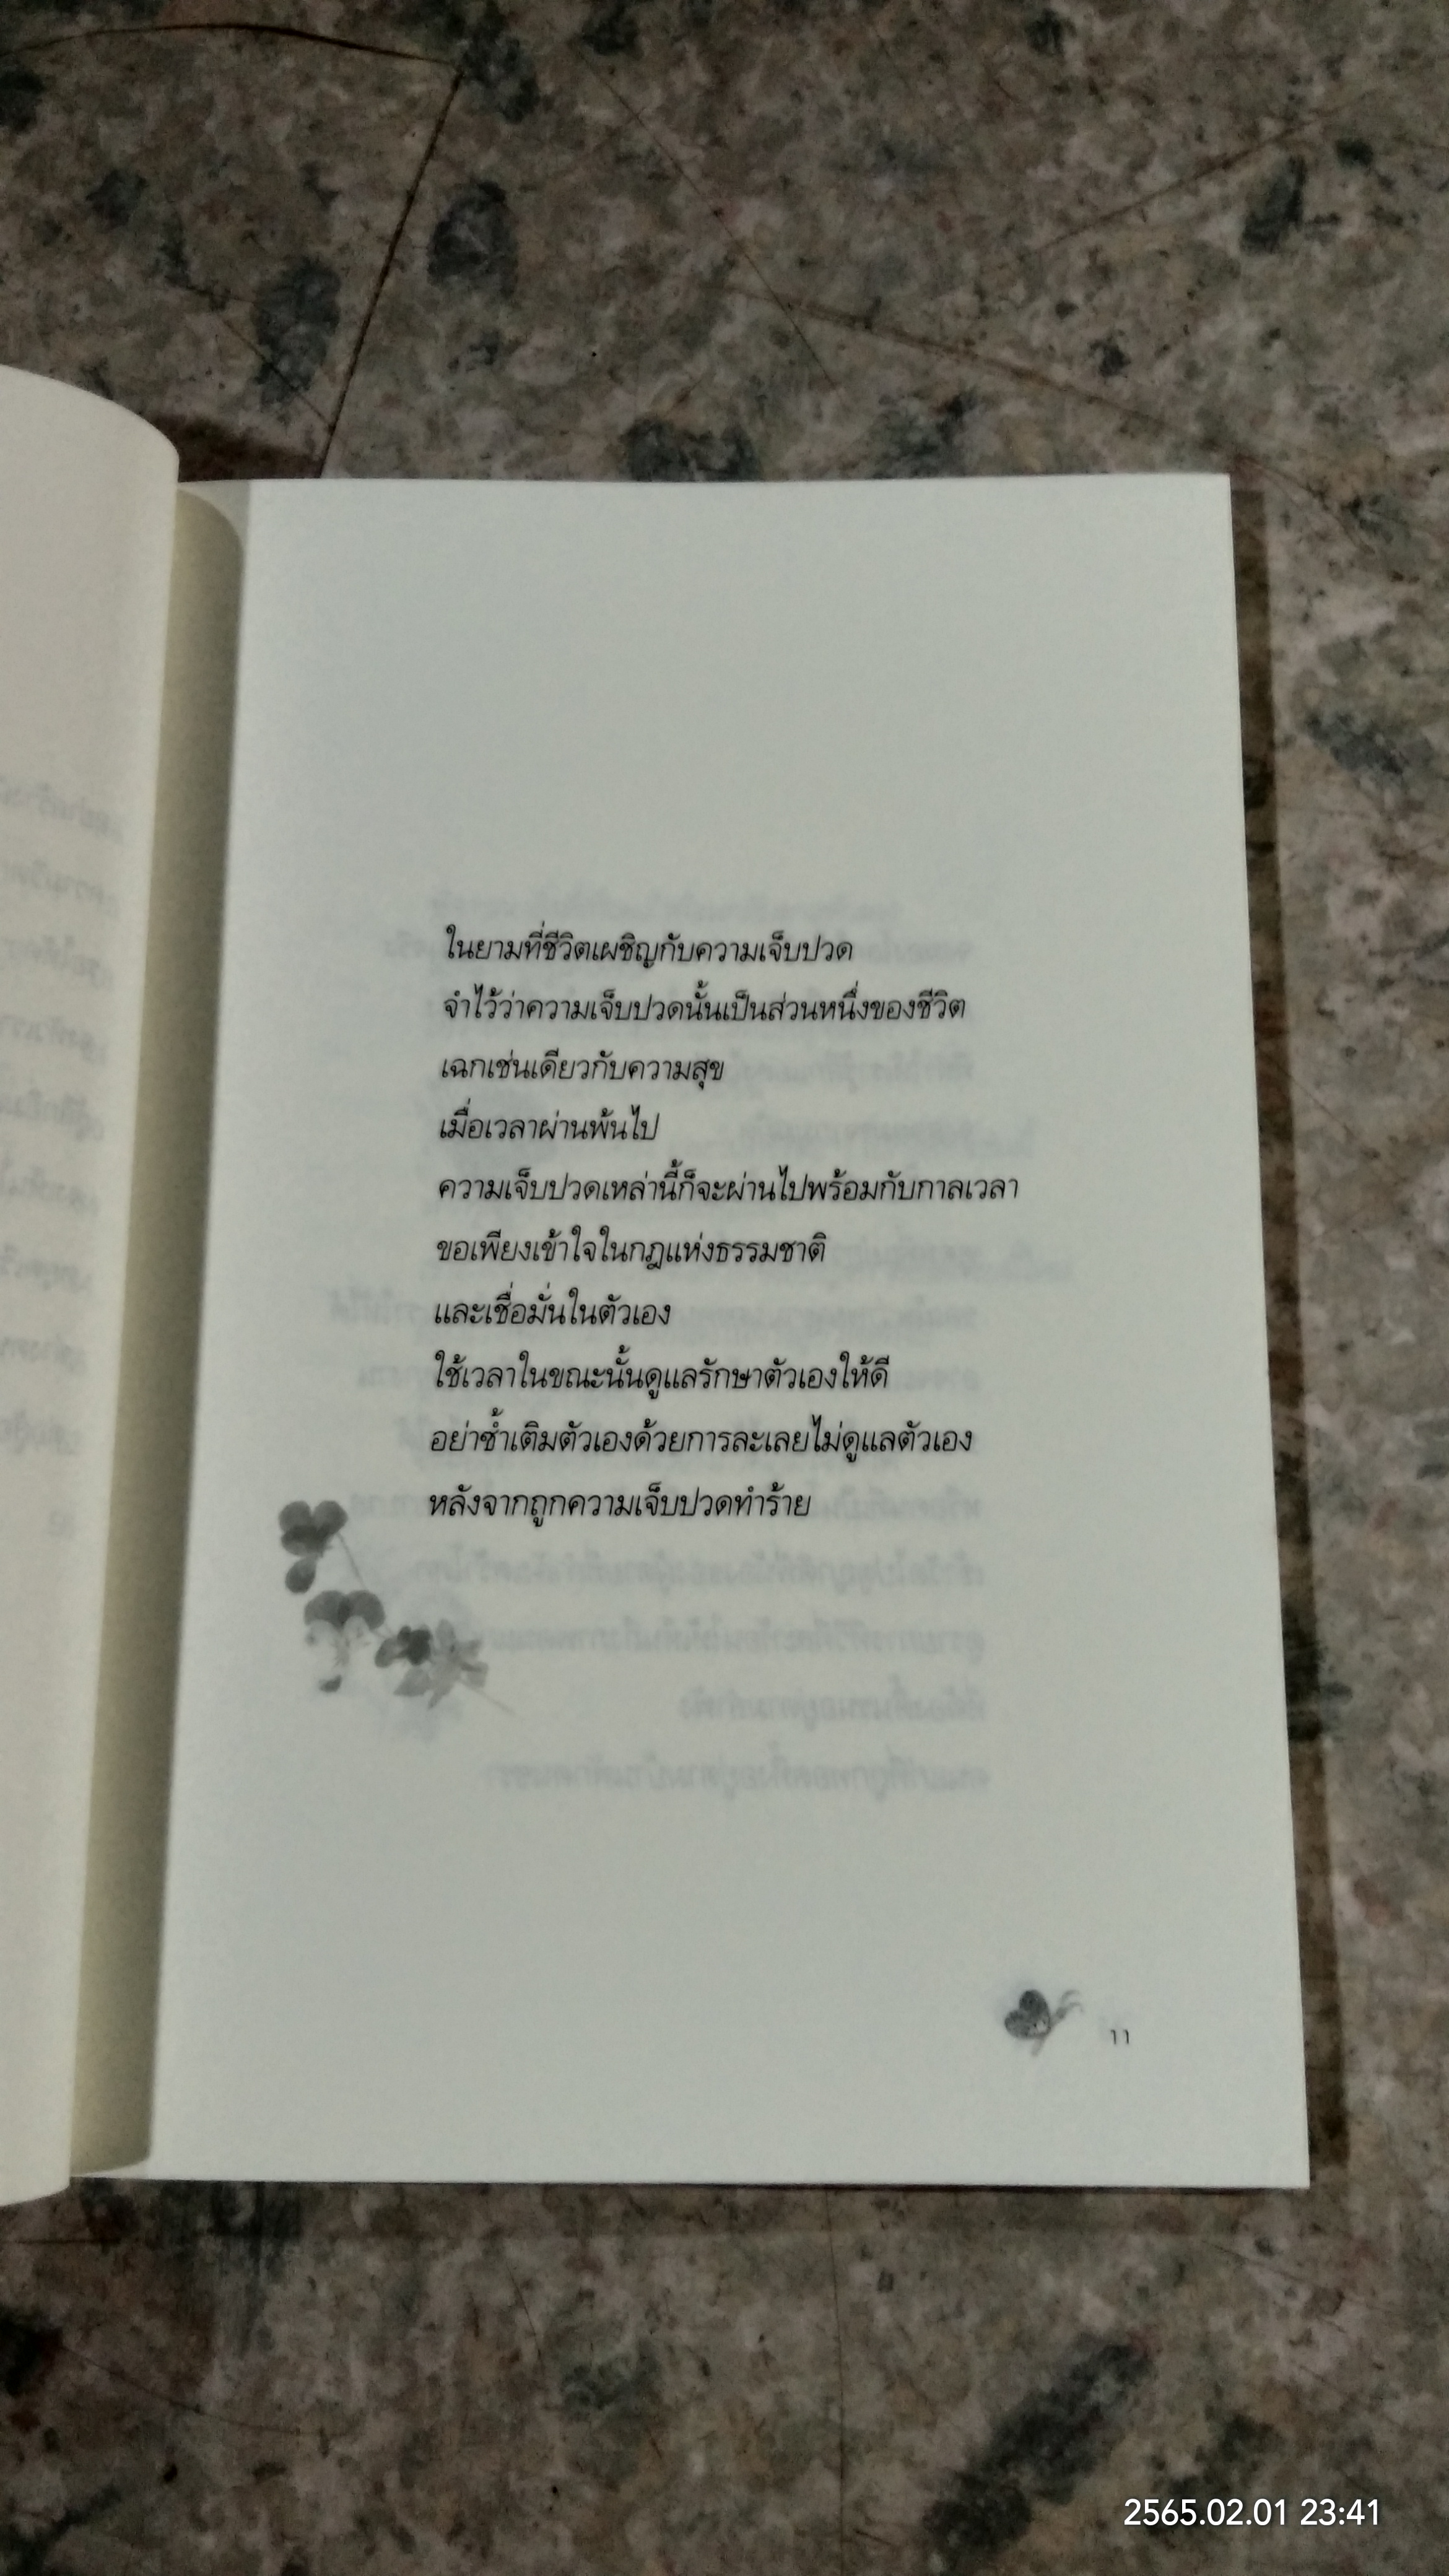 ในยามที่ชีวิตเผชิญกับความเจ็บปวด
จำไว้ว่าความเจ็บปวดนั้นเป็นส่วนหนึ่งของชีวิต
เฉกเช่นเดียวกับความสุข
เมื่อเวลาผ่านพ้นไป
ความเจ็บปวดเหล่านี้ก็จะผ่านไปพร้อมกับกาลเวลา
ขอเพียงเข้าใจในกฎแห่งธรรมชาติ
และเชื่อมั่นในตัวเอง
ใช้เวลาในขณะนั้นดูแลรักษาตัวเองให้ดี
อย่าซ้ำเติมตัวเองด้วยการละเลยไม่ดูแลตัวเอง
หลังจากถูกความเจ็บปวดทำร้าย
11
2565.02.01 23:41